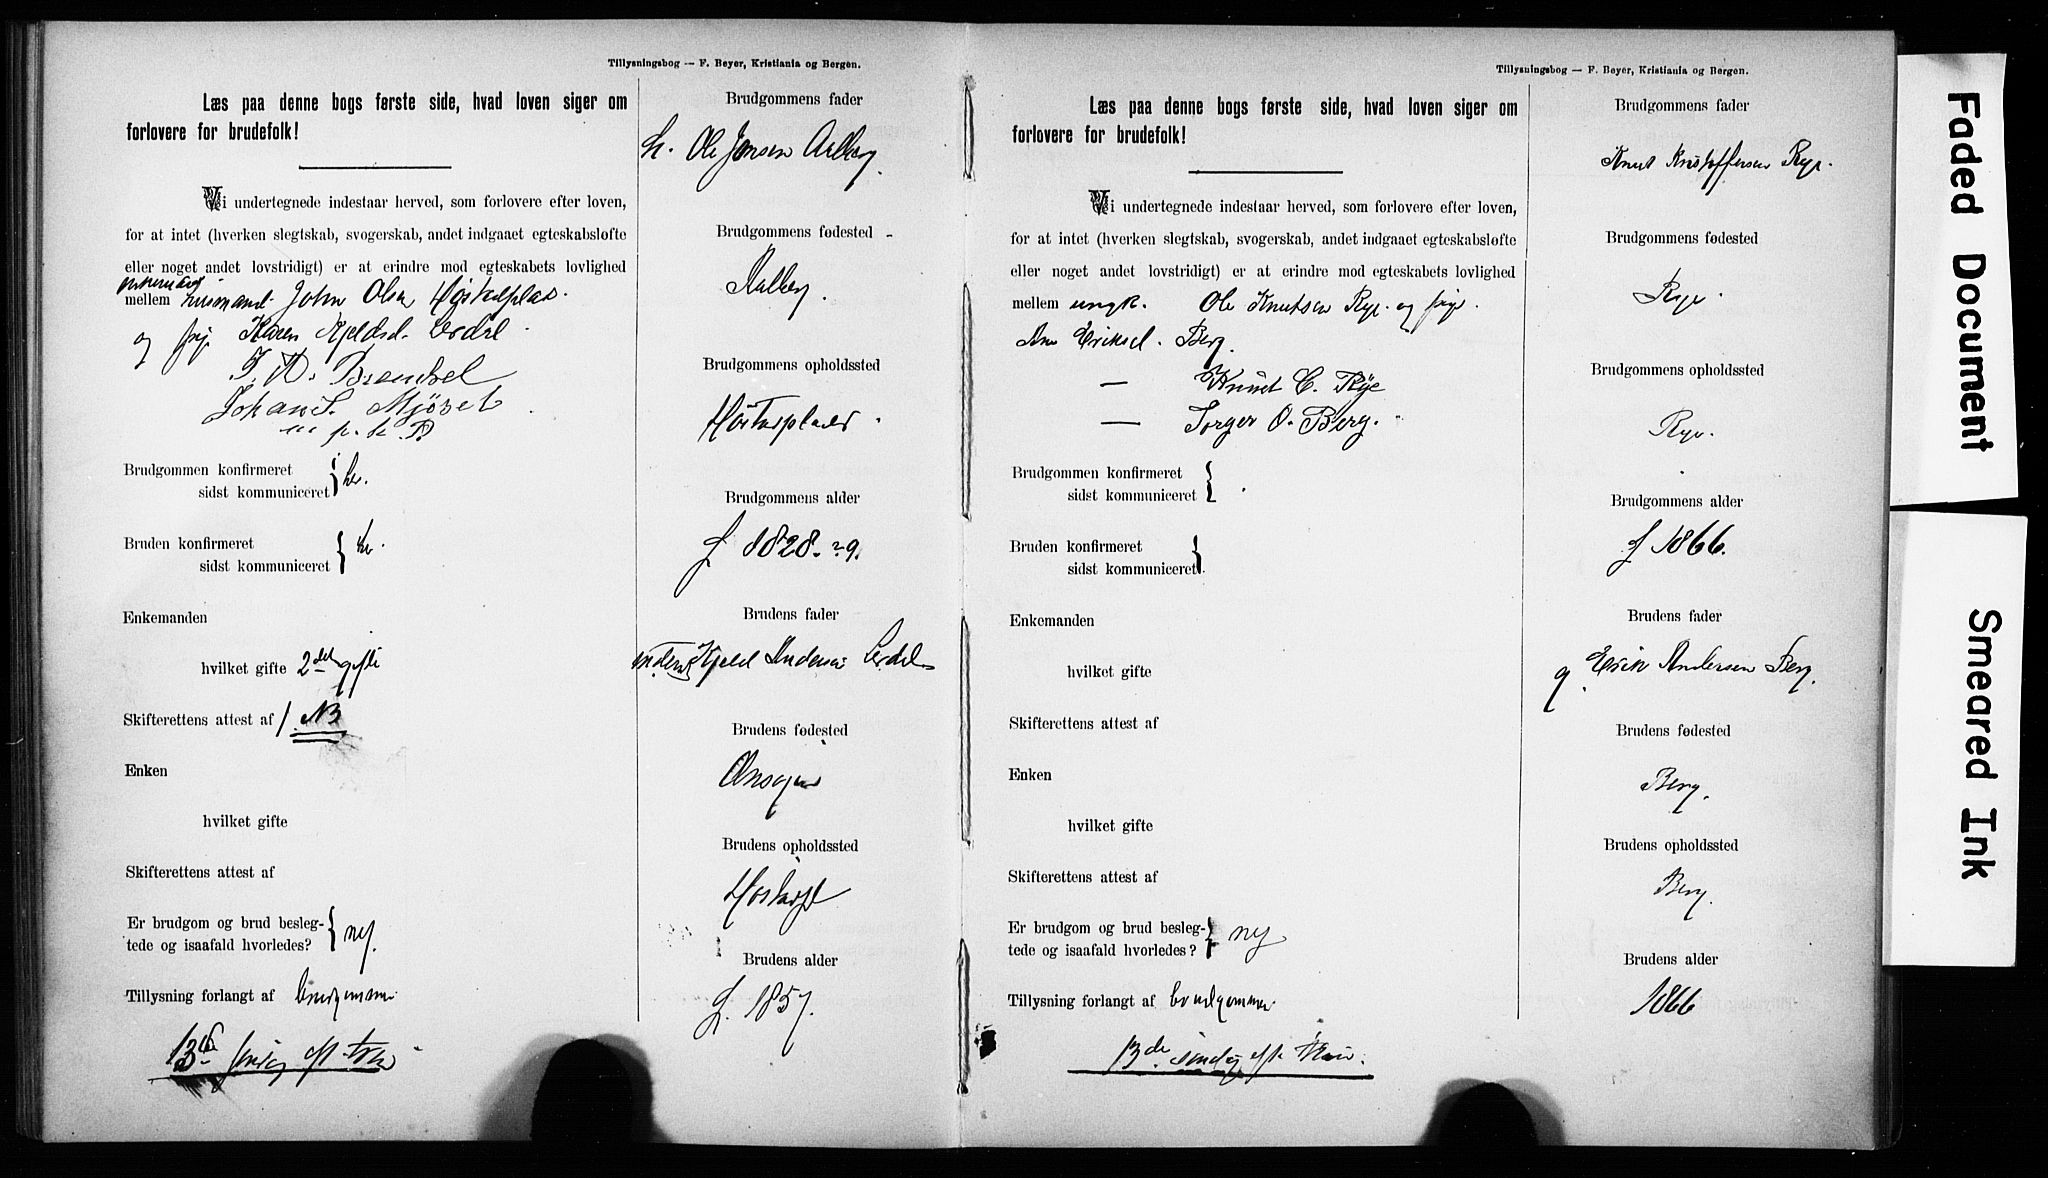 Tillysningsbog — F. Beyer, Kristiania og Bergen.
Læs paa denne bogs første side, hvad loven siger om
forlovere for brudefolk!
Vi undertegnede indestaar herved, som forlovere efter loven,
for at intet (hverken slegtskab, svogerskab, andet indgaaet egteskabsløfte
eller noget andet lovstridigt) er at erindre mod egteskabets lovlighed
mellem husmand John Olsen
og pige Karen Kjeldsd.
Johan S. Mjöset
m p. k. P
Brudgommen konfirmeret
sidst kommuniceret
Bruden konfirmeret
sidst kommuniceret
Enkemanden
hvilket gifte 2det gifte
Skifterettens attest af / NB
Enken
hvilket gifte
Skifterettens attest af
Er brudgom og brud besleg-
tede og isaafald hvorledes? } nej.
Tillysning forlangt af brudgommen
13de søndag eft. Trin.
Brudgommens fader
Ole Jonsen Aalberg.
Brudgommens fødested
Aalberg.
Brudgommens opholdssted
Brudgommens alder
f. 1828. 29.
Brudens fader
Kjeld Andersen
Brudens fødested
Brudens opholdssted
Brudens alder
f. 1857.
Tillysningsbog — F. Beyer, Kristiania og Bergen.
Læs paa denne bogs første side, hvad loven siger om
forlovere for brudefolk!
Vi undertegnede indestaar herved, som forlovere efter loven,
for at intet (hverken slegtskab, svogerskab, andet indgaaet egteskabsløfte
eller noget andet lovstridigt) er at erindre mod egteskabets lovlighed
mellem ungk. Ole Knutsen Rye og pige
Ane Eriksd. Berg.
— Knut C. Rye
— Torger O. Berg.
Brudgommen konfirmeret
sidst kommuniceret
Bruden konfirmeret
sidst kommuniceret
Enkemanden
hvilket gifte
Skifterettens attest af
Enken
hvilket gifte
Skifterettens attest af
Er brudgom og brud besleg-
tede og isaafald hvorledes? } nej
Tillysning forlangt af brudgommen
13de søndag eft. Trin.
Brudgommens fader
Knut Kristoffersen Rye.
Brudgommens fødested
Rye.
Brudgommens opholdssted
Rye.
Brudgommens alder
f 1866.
Brudens fader
g. Erik Andersen Berg.
Brudens fødested
Berg.
Brudens opholdssted
Berg.
Brudens alder
1866
Faded Document
Smeared Ink